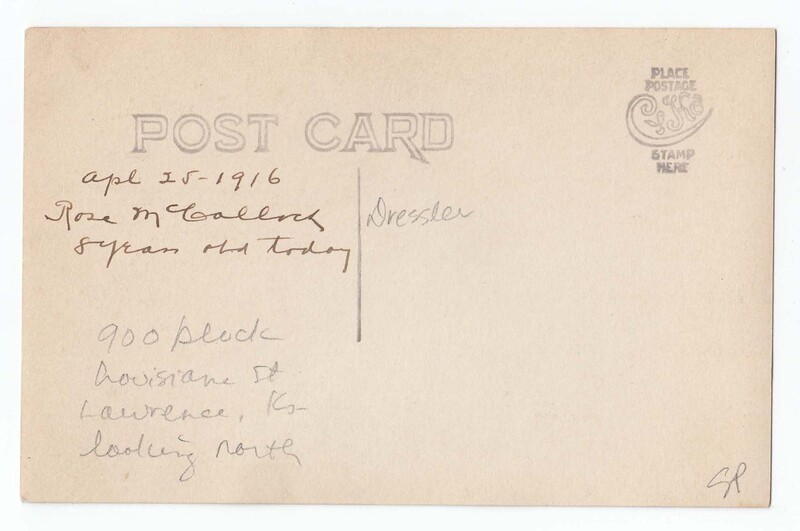 PLACE
POSTAGE
CYKO
STAMP
HERE
POST CARD
Apl 25-1916
Rose McCalloch
8 years old today
Dressler
900 block
Louisiana St
Lawrence, Ks
looking north